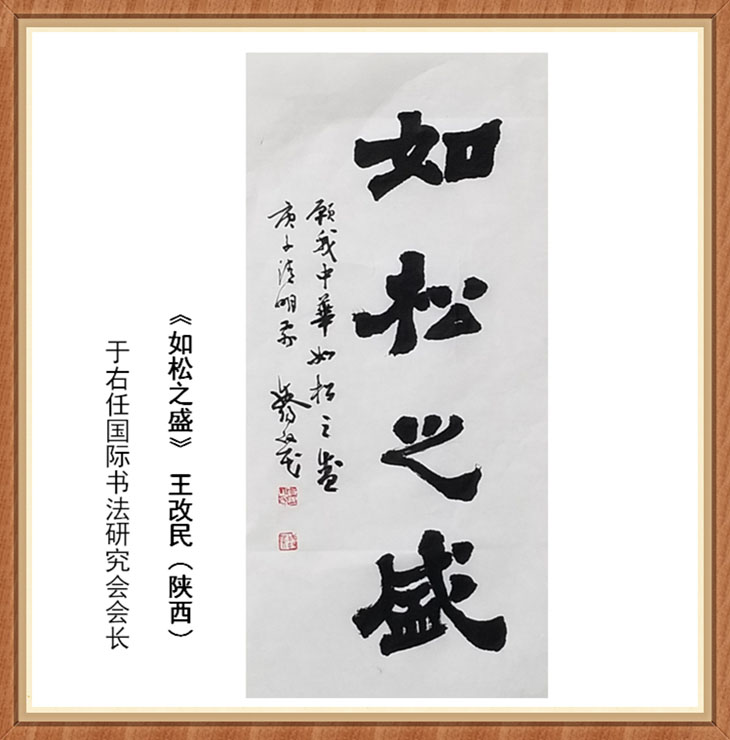 如松之盛
願我中華如松之盛
庚子清明前
改民
《如松之盛》 王改民（陕西）
于右任国际书法研究会会长